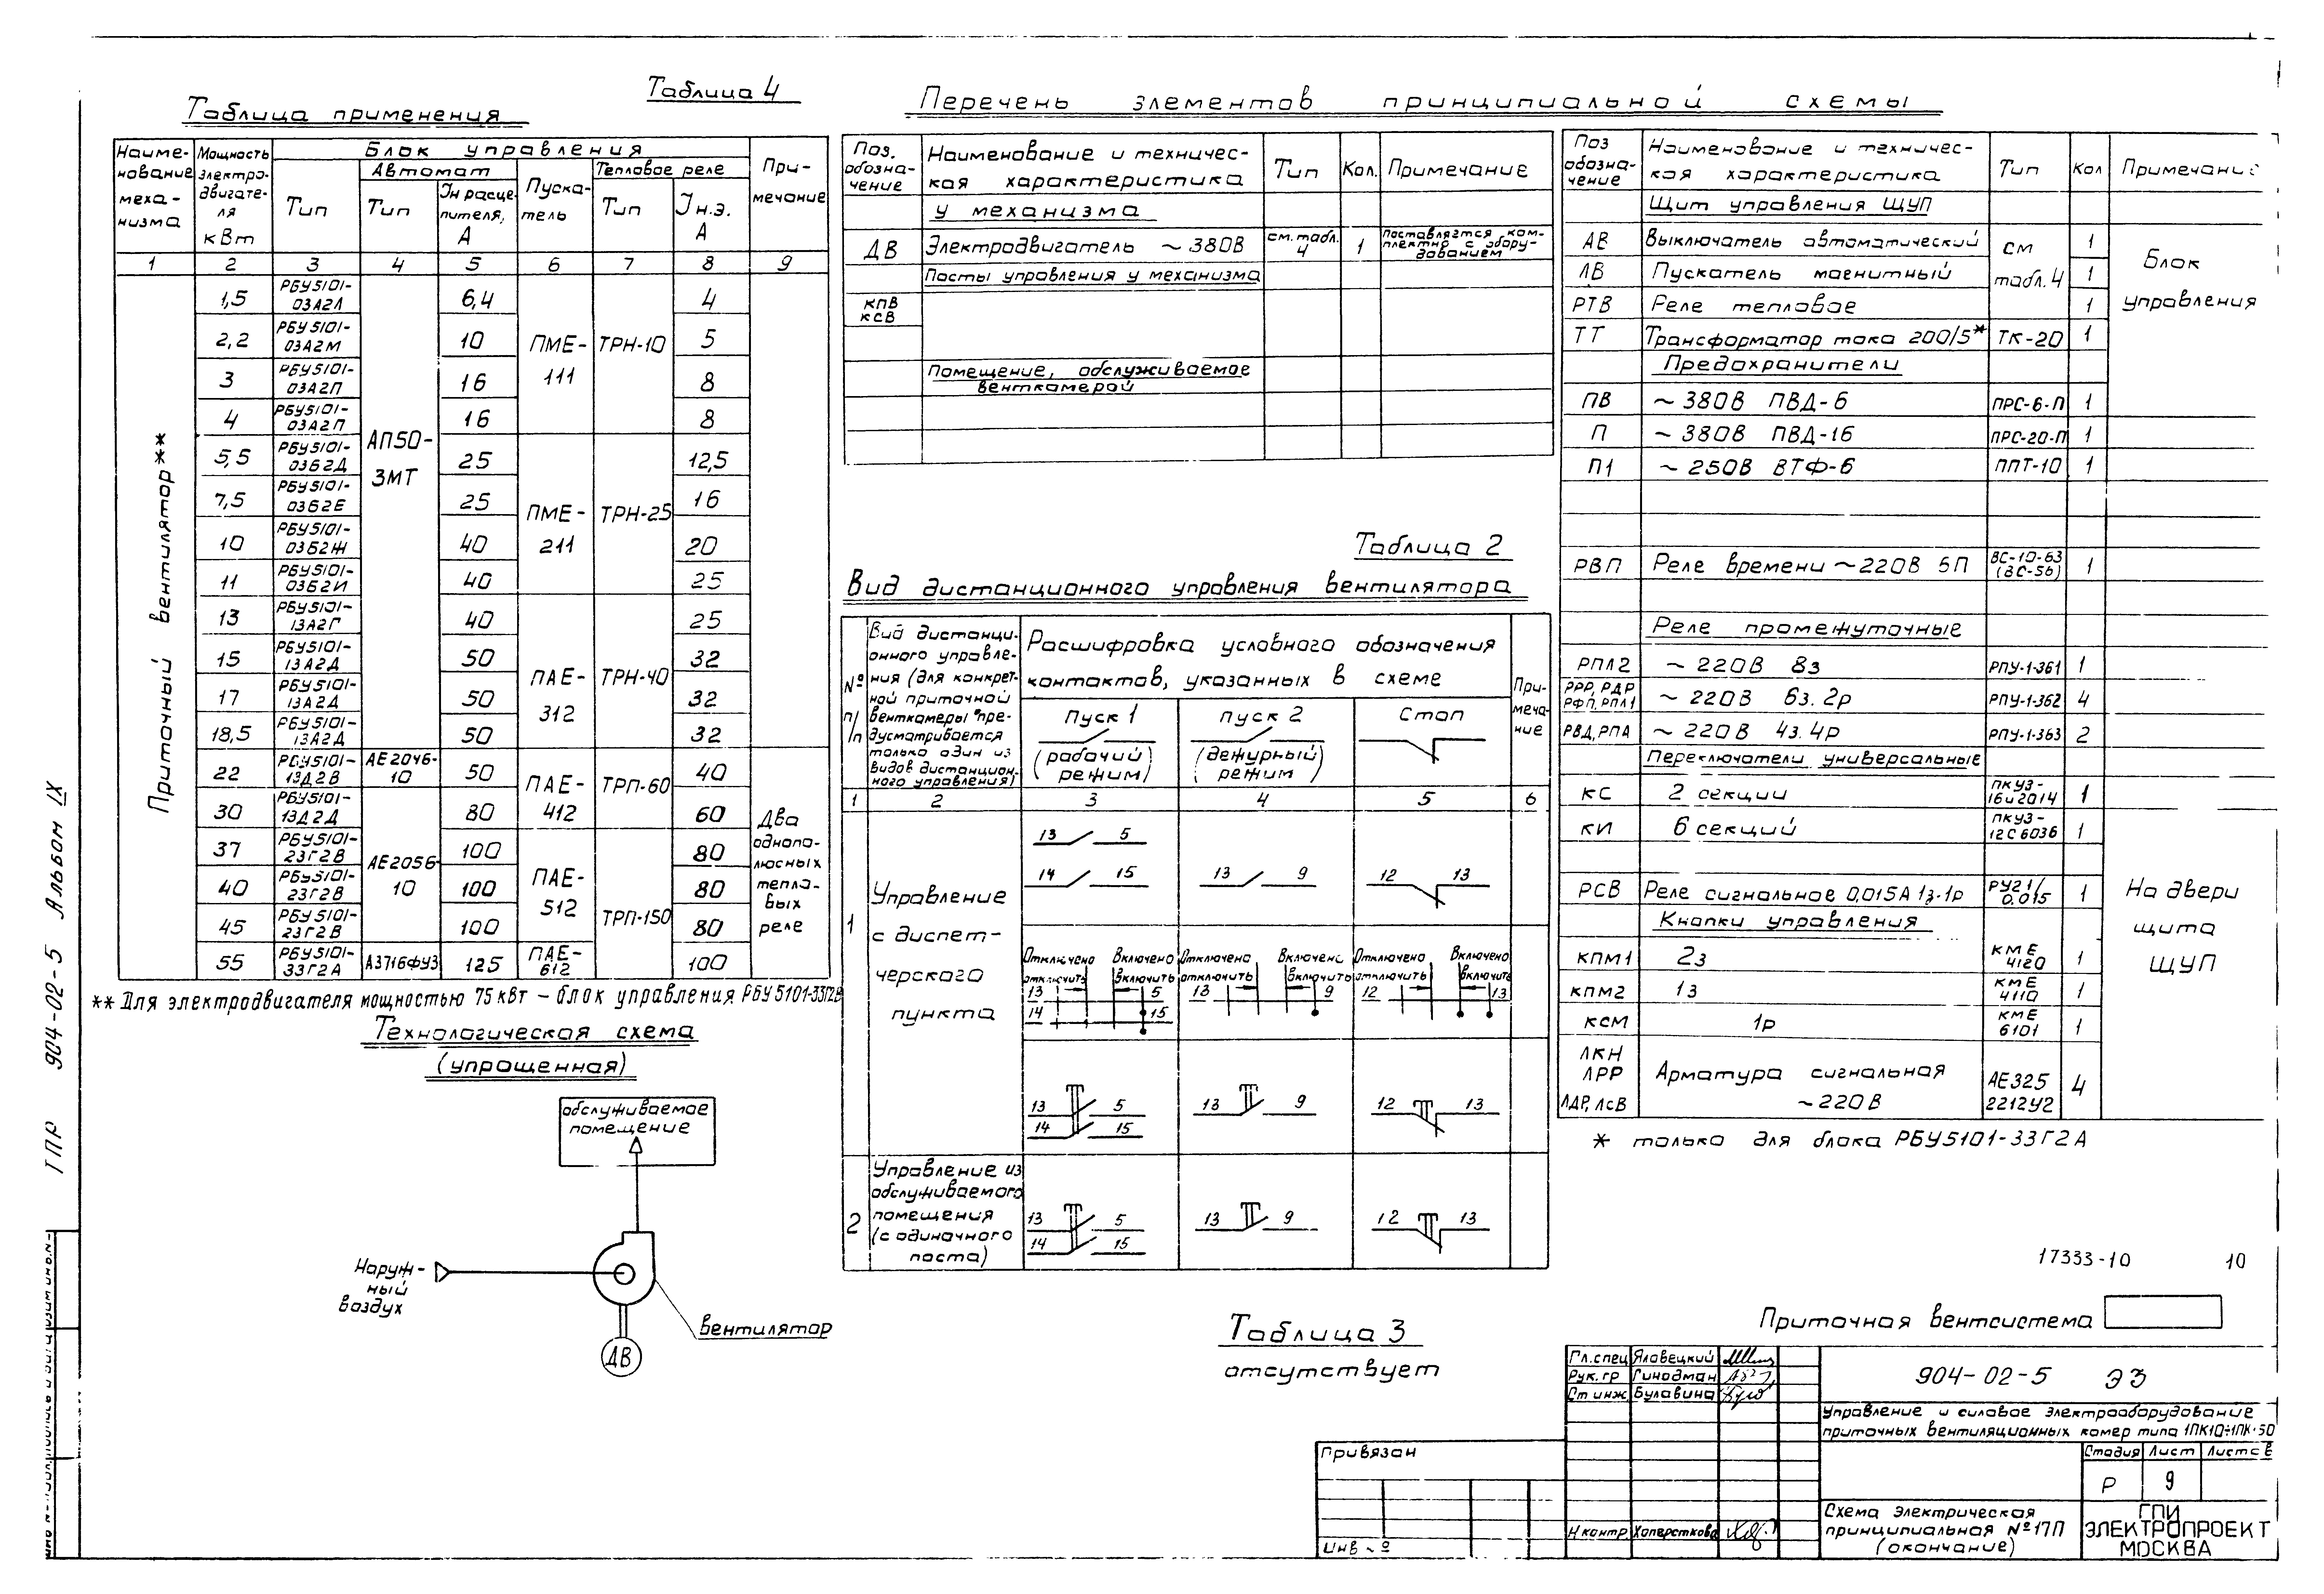 Таблица 4
Таблица применения
Наиме-
нование
меха-
низма
Мощность
электро-
двигате-
ля
кВт
Блок управления
Автомат
Тепловое реле
Тип
Тип
Iн расце-
пителя,
А
Пуска-
тель
Тип
Iн.э.
А
При-
мечание
1 2 3 4 5 6 7 8 9
Приточный вентилятор**
1,5 РБУ5101-03А2Л 6,4 4
2,2 РБУ5101-03А2М 10 5
3 РБУ5101-03А2П 16 8
4 РБУ5101-03А2П 16 8
ПМЕ-111 ТРН-10
АП50-3МТ
5,5 РБУ5101-03Б2Д 25 12,5
7,5 РБУ5101-03Б2Е 25 16
10 РБУ5101-03Б2Ж 40 20
11 РБУ5101-03Б2И 40 25
ПМЕ-211 ТРН-25
13 РБУ5101-13А2Г 40 25
15 РБУ5101-13А2Д 50 32
17 РБУ5101-13А2Д 50 32
18,5 РБУ5101-13А2Д 50 32
ПАЕ-312 ТРН-40
22 РБУ5101-13Д2В АЕ2046-10 50 40
30 РБУ5101-13Д2Д 80 60
ПАЕ-412 ТРП-60
37 РБУ5101-23Г2В 100 80
40 РБУ5101-23Г2В 100 80
45 РБУ5101-23Г2В 100 80
АЕ2056-10 ПАЕ-512 ТРП-150
55 РБУ5101-33Г2А А3716ФУ3 125 ПАЕ-612 100
Два
однопо-
люсных
тепло-
вых
реле
** Для электродвигателя мощностью 75 кВт – блок управления РБУ5101-33Г2В
Технологическая схема
(упрощенная)
обслуживаемое
помещение
Наруж-
ный
воздух
вентилятор
ДВ
Перечень элементов принципиальной схемы
Поз.
обозна-
чение
Наименование и техничес-
кая характеристика
Тип
Кол.
Примечание
У механизма
ДВ Электродвигатель ~ 380В см. табл. 4 1 Поставляется ком-
плектно с обору-
дованием
Посты управления у механизма
КПВ
КСВ
Помещение, обслуживаемое
венткамерой
Таблица 2
Вид дистанционного управления вентилятора
№
п/п
Вид дистанци-
онного управле-
ния (для конкрет-
ной приточной
венткамеры пре-
дусматривается
только один из
видов дистанцион-
ного управления)
Расшифровка условного обозначения
контактов, указанных в схеме
Пуск 1
(рабочий
режим)
Пуск 2
(дежурный
режим)
Стоп
При-
меча-
ние
1 2 3 4 5 6
1
Управление
с диспет-
черского
пункта
13 5
14 15 13 9 12 13
Отключено Включено Отключено Включено Отключено Включено
отключить Включить отключить Включить отключить Включить
13 5 13 9 12 13
14 15
13 5 13 9 12 13
14 15
2
Управление из
обслуживаемого
помещения
(с одиночного
поста)
13 5 13 9 12 13
14 15
Таблица 3
отсутствует
Поз
обозна-
чение
Наименование и техничес-
кая характеристика
Тип
Кол
Примечание
Щит управления ЩУП
АВ Выключатель автоматический 1
ЛВ Пускатель магнитный 1
РТВ Реле тепловое 1
см
табл. 4
Блок
управления
ТТ Трансформатор тока 200/5* ТК-20 1
Предохранители
ПВ ~ 380В ПВД-6 ПРС-6-П 1
П ~ 380В ПВД-16 ПРС-20-П 1
П1 ~ 250В ВТФ-6 ППТ-10 1
РВП Реле времени ~220В 5П ВС-10-63 (ВС-56) 1
Реле промежуточные
РПЛ2 ~ 220В 8з РПУ-1-361 1
РРР, РДР
РФП, РПЛ1 ~ 220В 6з. 2р РПУ-1-362 4
РВД, РПА ~ 220В 4з. 4р РПУ-1-363 2
Переключатели универсальные
КС 2 секции ПКУ3-16и2014 1
КИ 6 секций ПКУ3-12С6036 1
РСВ Реле сигнальное 0,015А 1з-1р РУ21/0,015 1
Кнопки управления
КПМ1 2з КМЕ 4120 1
КПМ2 1з КМЕ 4110 1
КСМ 1р КМЕ 6101 1
ЛКН
ЛРР
ЛДР, ЛСВ
Арматура сигнальная
~220В
АЕ325
2212У2
4
На двери
щита
ЩУП
* только для блока РБУ5101-33Г2А
17333-10 10
Приточная вентсистема
Гл. спец Яловецкий
Рук. гр Гинодман
Ст инж Булавина
Н контр. Хоперсткова
904-02-5 ЭЗ
Управление и силовое электрооборудование
приточных вентиляционных камер типа 1ПК10÷1ПК-50
Стадия Лист Листов
Р 9
Схема электрическая
принципиальная №17П
(окончание)
ГПИ
ЭЛЕКТРОПРОЕКТ
МОСКВА
Привязан
Инв №
ТПР 904-02-5 Альбом IX